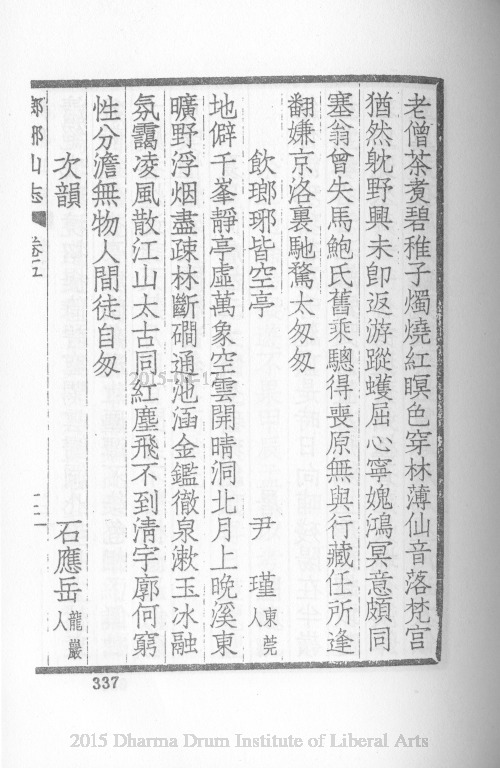 老僧茶煑碧稚子燭燒紅暝色穿林薄仙音落梵宮
猶然躭野興未卽返游蹤蠖屈心寧媿鴻冥意頗同
塞翁曾失馬鮑氏舊乘驄得喪原無與行藏任所逢
翻嫌京洛裏馳騖太匆匆
飲瑯琊皆空亭 尹瑾東莞人
地僻千峯靜亭虛萬象空雲開晴洞北月上晚溪東
曠野浮烟盡疎林斷磵通池涵金鑑徹泉漱玉冰融
氛靄凌風散江山太古同紅塵飛不到清宇廓何窮
性分澹無物人間徒自匆
次韻 石應岳龍巖人
瑯琊山志 卷五
337
2015 Dharma Drum Institute of Liberal Arts